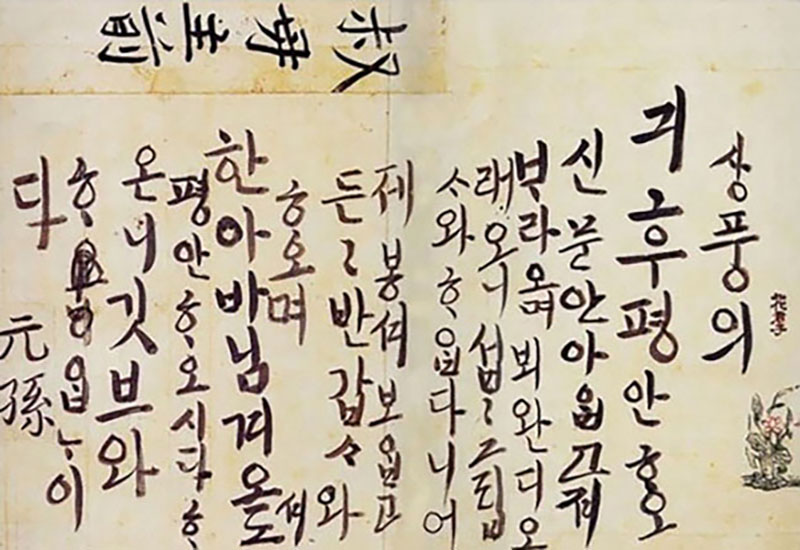 상풍의
긔후평안ᄒᆞ오
신문안아ᄋᆞᆸ고져
ᄇᆞ라오며뵈완디오
래오니섭〻그립
ᄉᆞ와ᄒᆞᄋᆞᆸ다니어
제봉셔보ᄋᆞᆸ고
든〻반갑ᄉᆞ와
ᄒᆞ오며
한아바님겨오셔도
평안ᄒᆞ오시다ᄒᆞ
온니깃브와
ᄒᆞᄋᆞᆸᄂᆞ이
다
元孫
叔母主前